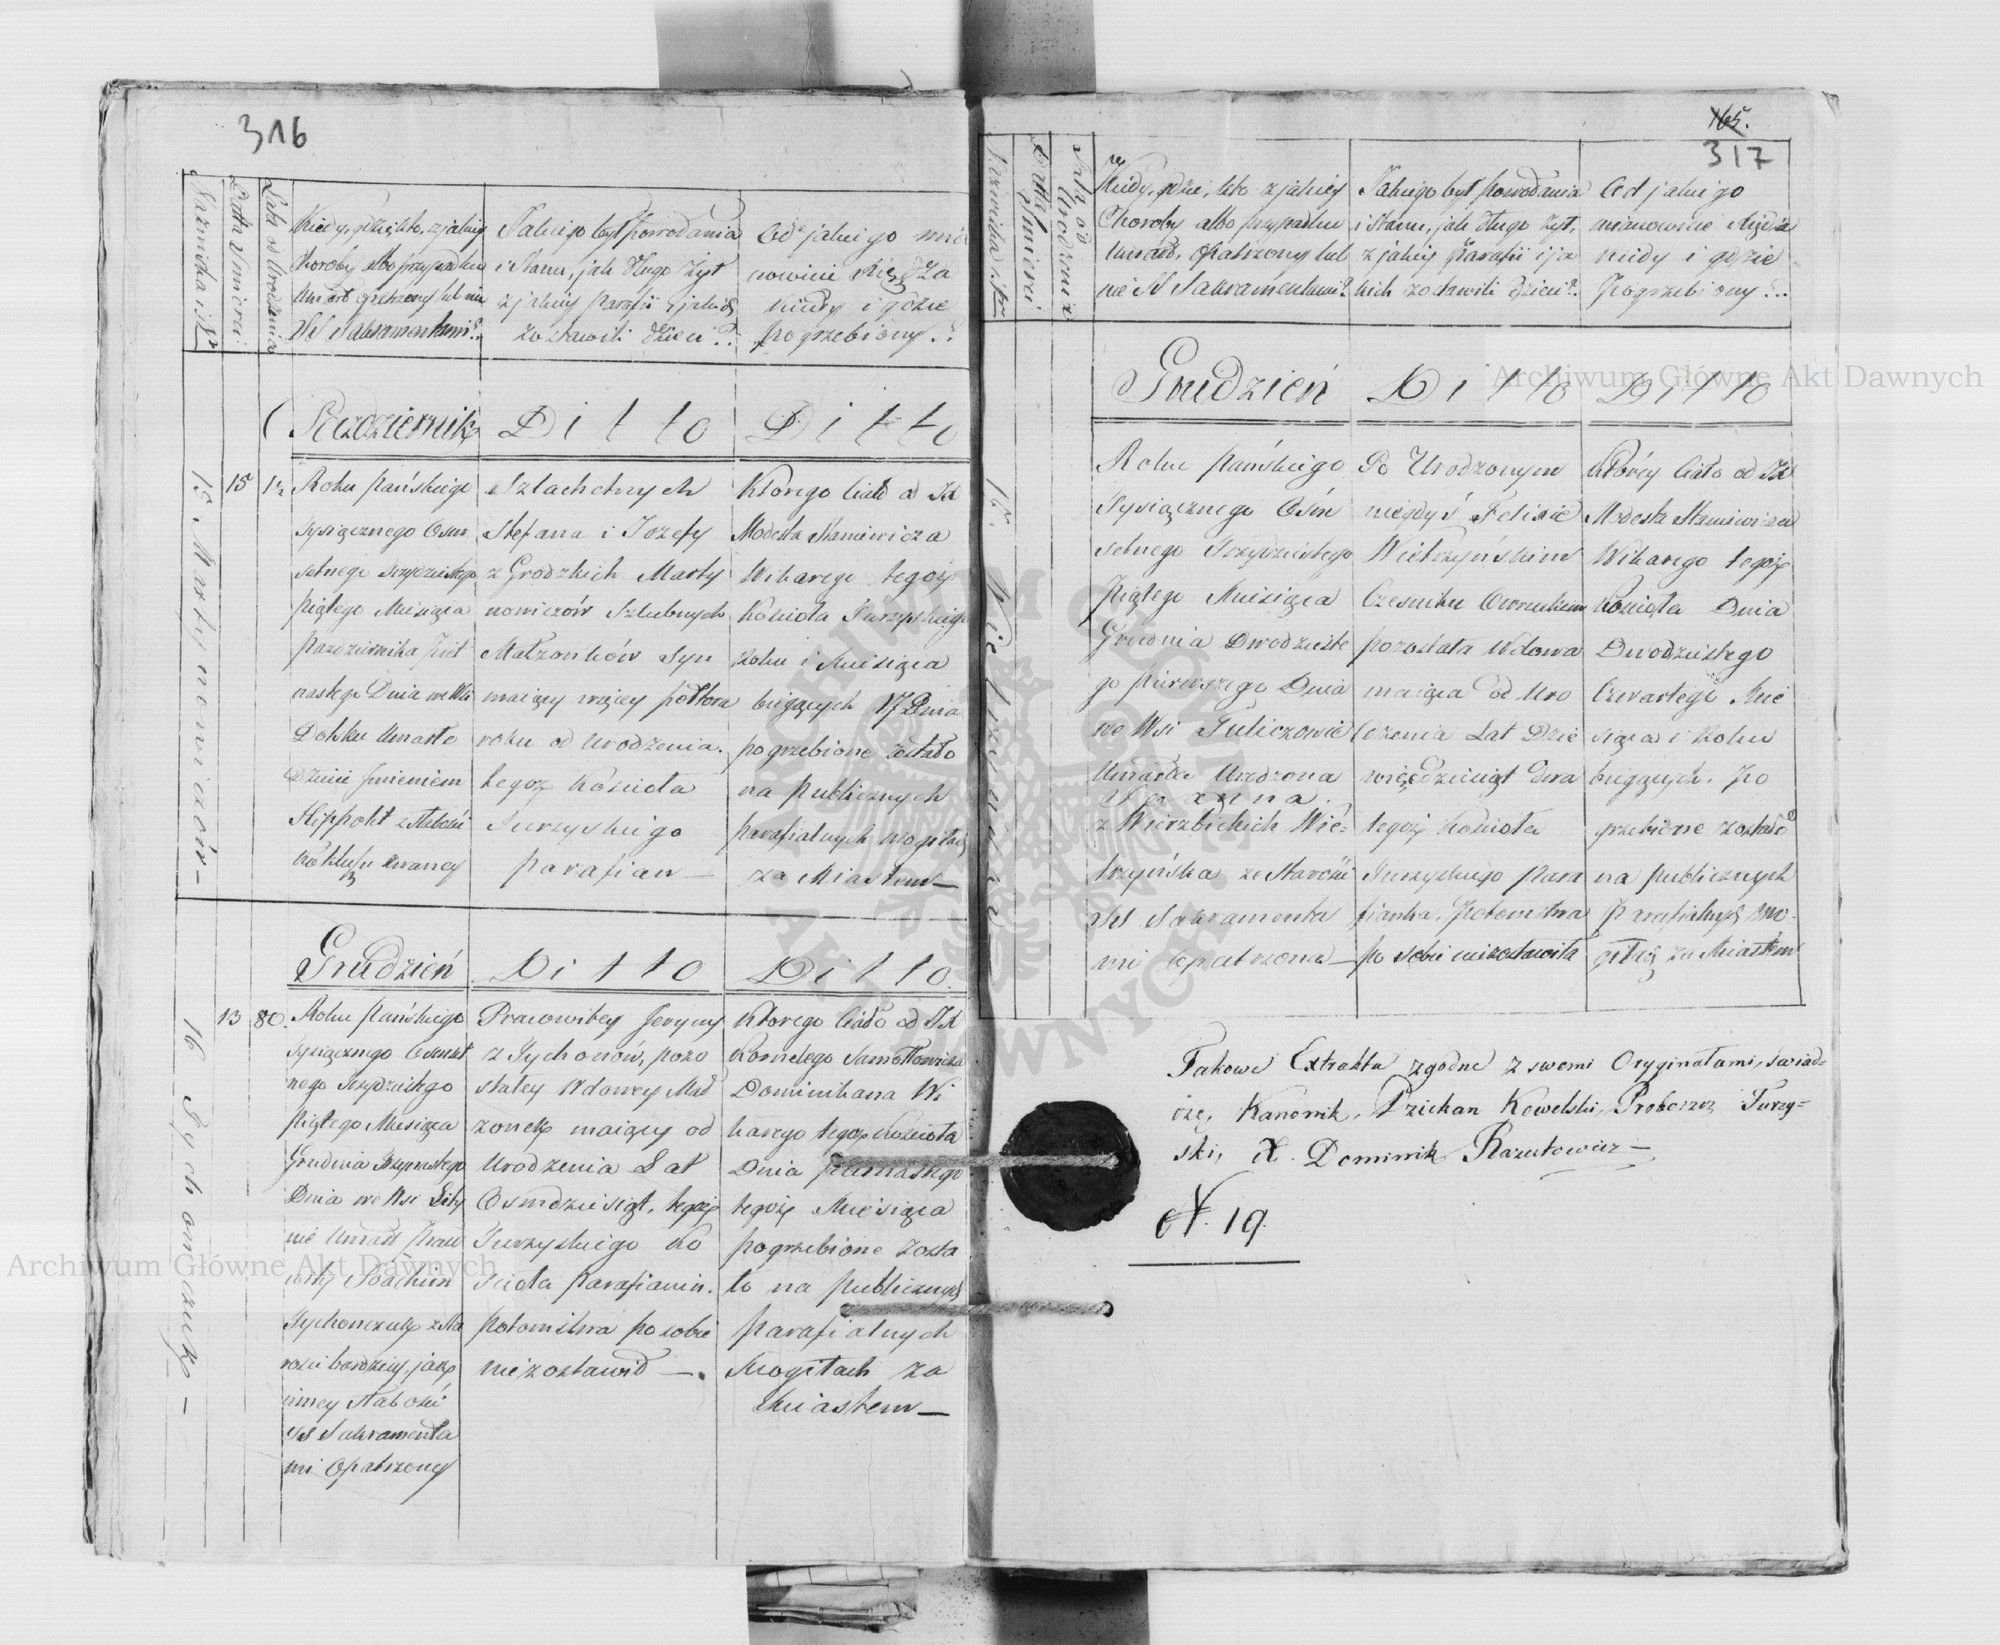 316
Nazwiska i Nr
Datta Smierci
Lata od Urodzenia
Kiedy, gdzie, kto, z jakiey
Choroby albo przypadku
Umarł opatrzony lub nie
SS Sakramentami?
Jakiego był powodania
i Stanu, jak długo żył
z jakiey Parafii i jakich
zostawili dzieci?
Od jakiego mia
nowicie Księdza
kiedy i gdzie
pogrzebiony?
Pazdziernik
Ditto
Ditto
15 Martynowiczów
15
1½
Roku Pańskiego
tysiącznego Osm
setnego trzydziestego
piątego Miesiąca
Pazdziernika Piet
nastego Dnia we Wsi
Dolsku Umarło
Dziecie Jmieniem
Hippolit z Słabości
Kokluszu zwaney
Szlachetnych
Stefana i Jozefy
z Grodzkich Marty
nowiczów Szlubnych
Małzonków Syn
maiący więcey półtora
roku od urodzenia.
tegoż Kościoła
Turzyskiego
parafian —
Którego Ciało od JX
Modesta Staniewicza
Wikarego tegoż
Kościoła Turzyskiego
Roku i Miesiąca
bieżących 17 Dnia
pogrzebione zostało
na publicznych
parafialnych mogiłach
za Miastem —
Grudzień
Ditto
Ditto
16 Tychonczuk —
13
80.
Roku Pańskiego
tysiącznego Osmset
nego trzydziestego
piątego Miesiąca
Grudnia trzynastego
Dnia we Wsi
nie Umarł Praco
wity Joachim
Tychonczuk z Sta
rości bardziey jak
inney słabości
SS Sakramenta
mi Opatrzony
Pracowitey
z Tychonów, pozo
stałey Wdowey Mał
zonek maiący od
Urodzenia Lat
Osmdziesiąt, tegoż
Turzyskiego Ko
scioła Parafianin.
potomstwa po sobie
niezostawił —.
Którego Ciało od JX
Kornelego Samotłowicza
Dominikana Wi
karego tegoż Kościoła
Dnia
tegoż Miesiąca
pogrzebione zosta
ło na publicznych
parafialnych
Mogiłach za
Miastem —
165.
317
Nazwiska i Nr
Datta Smierci
Lata od Urodzenia
Kiedy, gdzie, kto z jakiey
Choroby albo przypadku
Umarł, Opatrzony lub
nie SS Sakramentami?
Jakiego był powodania
i Stanu, jak długo żył,
z jakiey Parafii i ja
kich zostawili dzieci?
Od jakiego
mianowicie Księdza
kiedy i gdzie
Pogrzebiony?
Grudzień
Ditto
Ditto
Roku Pańskiego
tysiącznego Osm
setnego trzydziestego
Piątego Miesiąca
Grudnia Dwodzieste
go pierwszego Dnia
we Wsi Tuliczowie
Umarła Urodzona
z Wierzbickich Wie=
trzyńska ze Starości
SS Sakramenta
mi opatrzona —
Po Urodzonym
niegdyś Felixie
Wietrzyńskim
Czesniku Owruckim
pozostała Wdowa
maiąca od Uro
dzenia Lat Dzie
więdziesiąt dwa
tegoż Kościoła
Turzyskiego Para
fianka, Potomstwa
po sobie niezostawiła
Którey Ciało od JX
Modesta Staniewicza
Wikarego tegoż
Kościoła Dnia
Dwodziestego
Czwartego Mie
siąca i Roku
bieżących. Po
grzebione zostało
na publicznych
Parafialnych Mo
giłach za Miastem
Takowe Extrakta zgodne z swemi Oryginałami, swiad=
czę, Kanonik, Dziekan Kowelski, Proboszcz Turzy=
ski, X. Dominik Razutowicz —
N. 19.
Archiwum Główne Akt Dawnych
Archiwum Główne Akt Dawnych